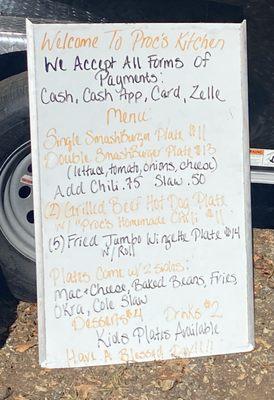 Welcome To Proc's Kitchen
We Accept All Forms of
Payments:
Cash, Cash App, Card, Zelle
Menu:
Single SmashBurger Plate $11
Double SmashBurger Plate $13
(lettuce, tomato, onions, cheese)
Add Chili .75 Slaw .50
(2) Grilled Beef Hot Dog Plate
w/ "Proc's Homemade Chili" $11
(5) Fried Jumbo Wingette Plate $14
w/ Roll
Plates Come w/ 2 sides:
Mac & Cheese, Baked Beans, Fries,
Okra, Cole Slaw
Desserts $4 Drinks $2
Kids Plates Available
Have A Blessed Day!!!